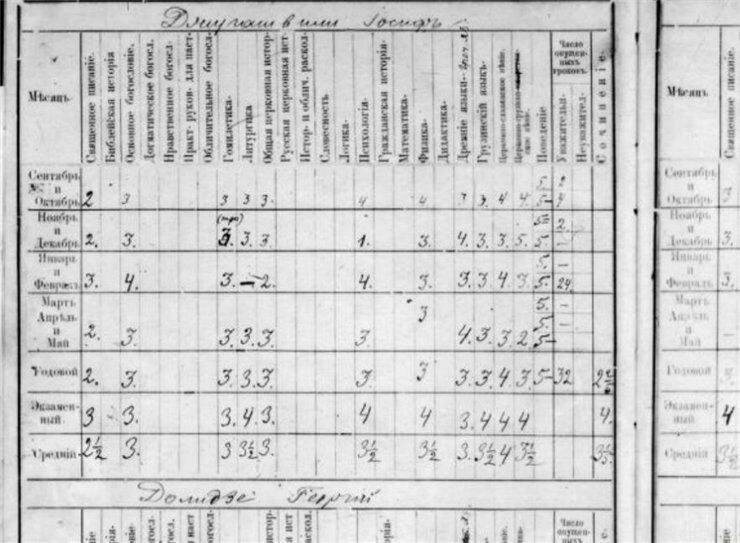 Джугашвили Іосифъ
Мѣсяцъ.
Священное писаніе.
Библейская исторія
Основное богословіе.
Догматическое богосл.
Нравственное богосл.
Практ. руков. для паст.
Обличительное богосл.
Гомилетика.
Литургика
Общая церковная истор.
Русская церковная ист
Истор. и облич. раскол.
Словесность
Логика.
Психологія.
Гражданская исторія.
Математика.
Физика.
Дидактика.
Древніе языки
Грузинскій языкъ.
Церковно-славянское пѣніе.
Поведеніе
Число опущенныхъ уроковъ.
Уважительн.
Неуважител.
Сочиненіе.
Сентябрь и Октябрь 2 3 3 3 3 4 4 3 3 4 4 5 5 2
Ноябрь и Декабрь 2. 3. 3. 3. 3. 1. 3. 4. 3. 3. 5. 5 5 2 –
Январь и Февраль 3. 4. 3. – 2. 4. 3. 3. 3 4 3. 5. 5 – 24
Мартъ Апрѣль и Май 2. 3. 3. 3. 3. 3. 3 4. 3. 3. 2. 5. 5. 5 – –
Годовой 2. 3. 3. 3. 3. 3. 3 3. 3. 4 3. 5 32
Экзаменный. 3 3. 3. 4 3. 4 4 3. 4 4 4 4.
Средній 2½ 3. 3 3½ 3. 3½ 3½ 3. 3½ 4 3½
Долидзе Георгій
Священное писаніе.
Мѣсяцъ.
Сентябрь и Октябрь 3
Ноябрь и Декабрь 3.
Январь и Февраль 3.
Мартъ Апрѣль и Май –
Годовой
Экзаменный. 4
Средній 3½